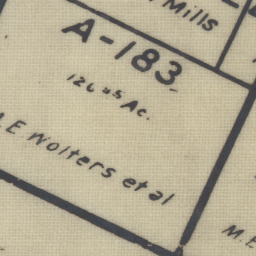 Mills
A-183
126.45 Ac.
E Wolters et al
M.E